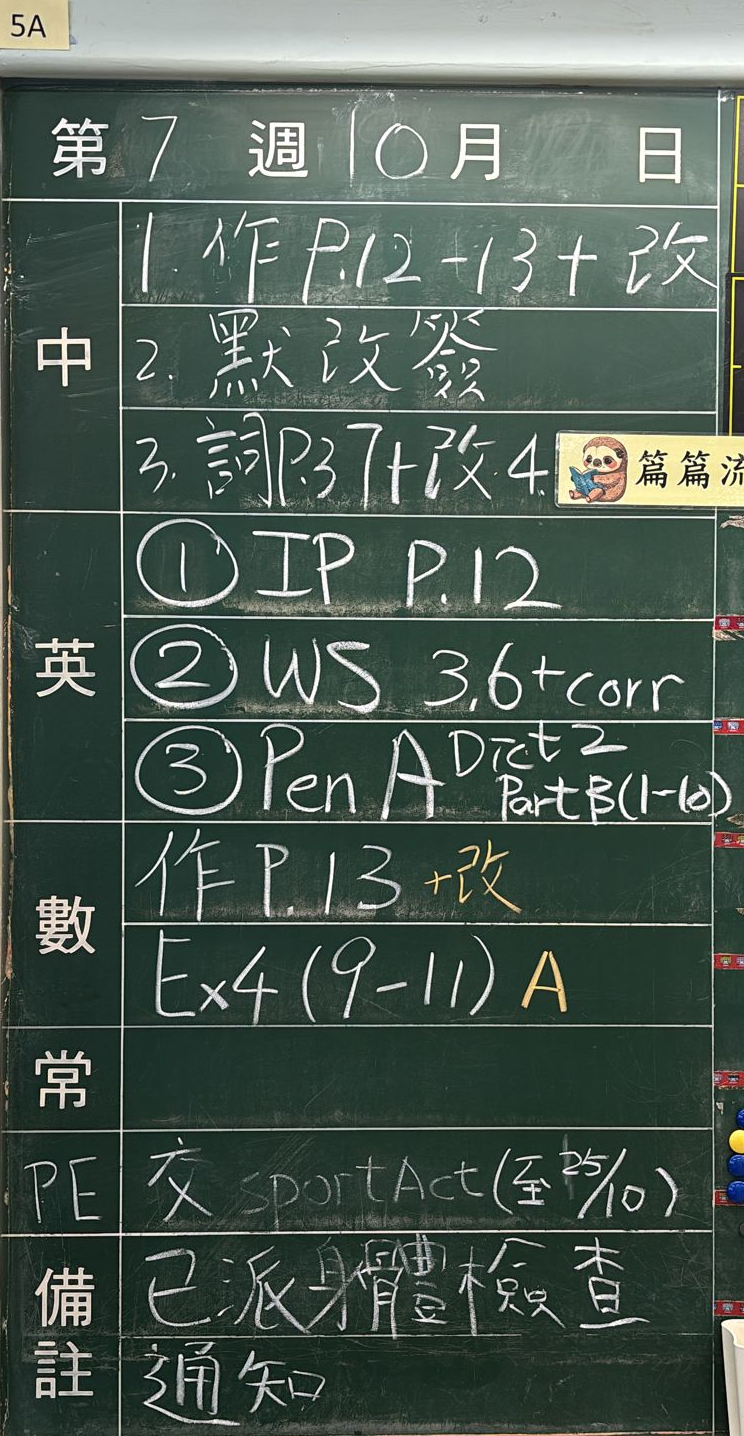 5A
第 7 週 10 月 日
中
1. 作 P.12-13+ 改
2. 默 改 簽
3. 詞P.37+改 4.
篇篇流
英
① IP P.12
② WS 3.6+corr
③ Pen A Dict 2
Part B(1-10)
數
作 P.13 +改
Ex4 (9-11) A
常
PE
交 sportAct(至25/10)
備註
已派身體檢查
通知